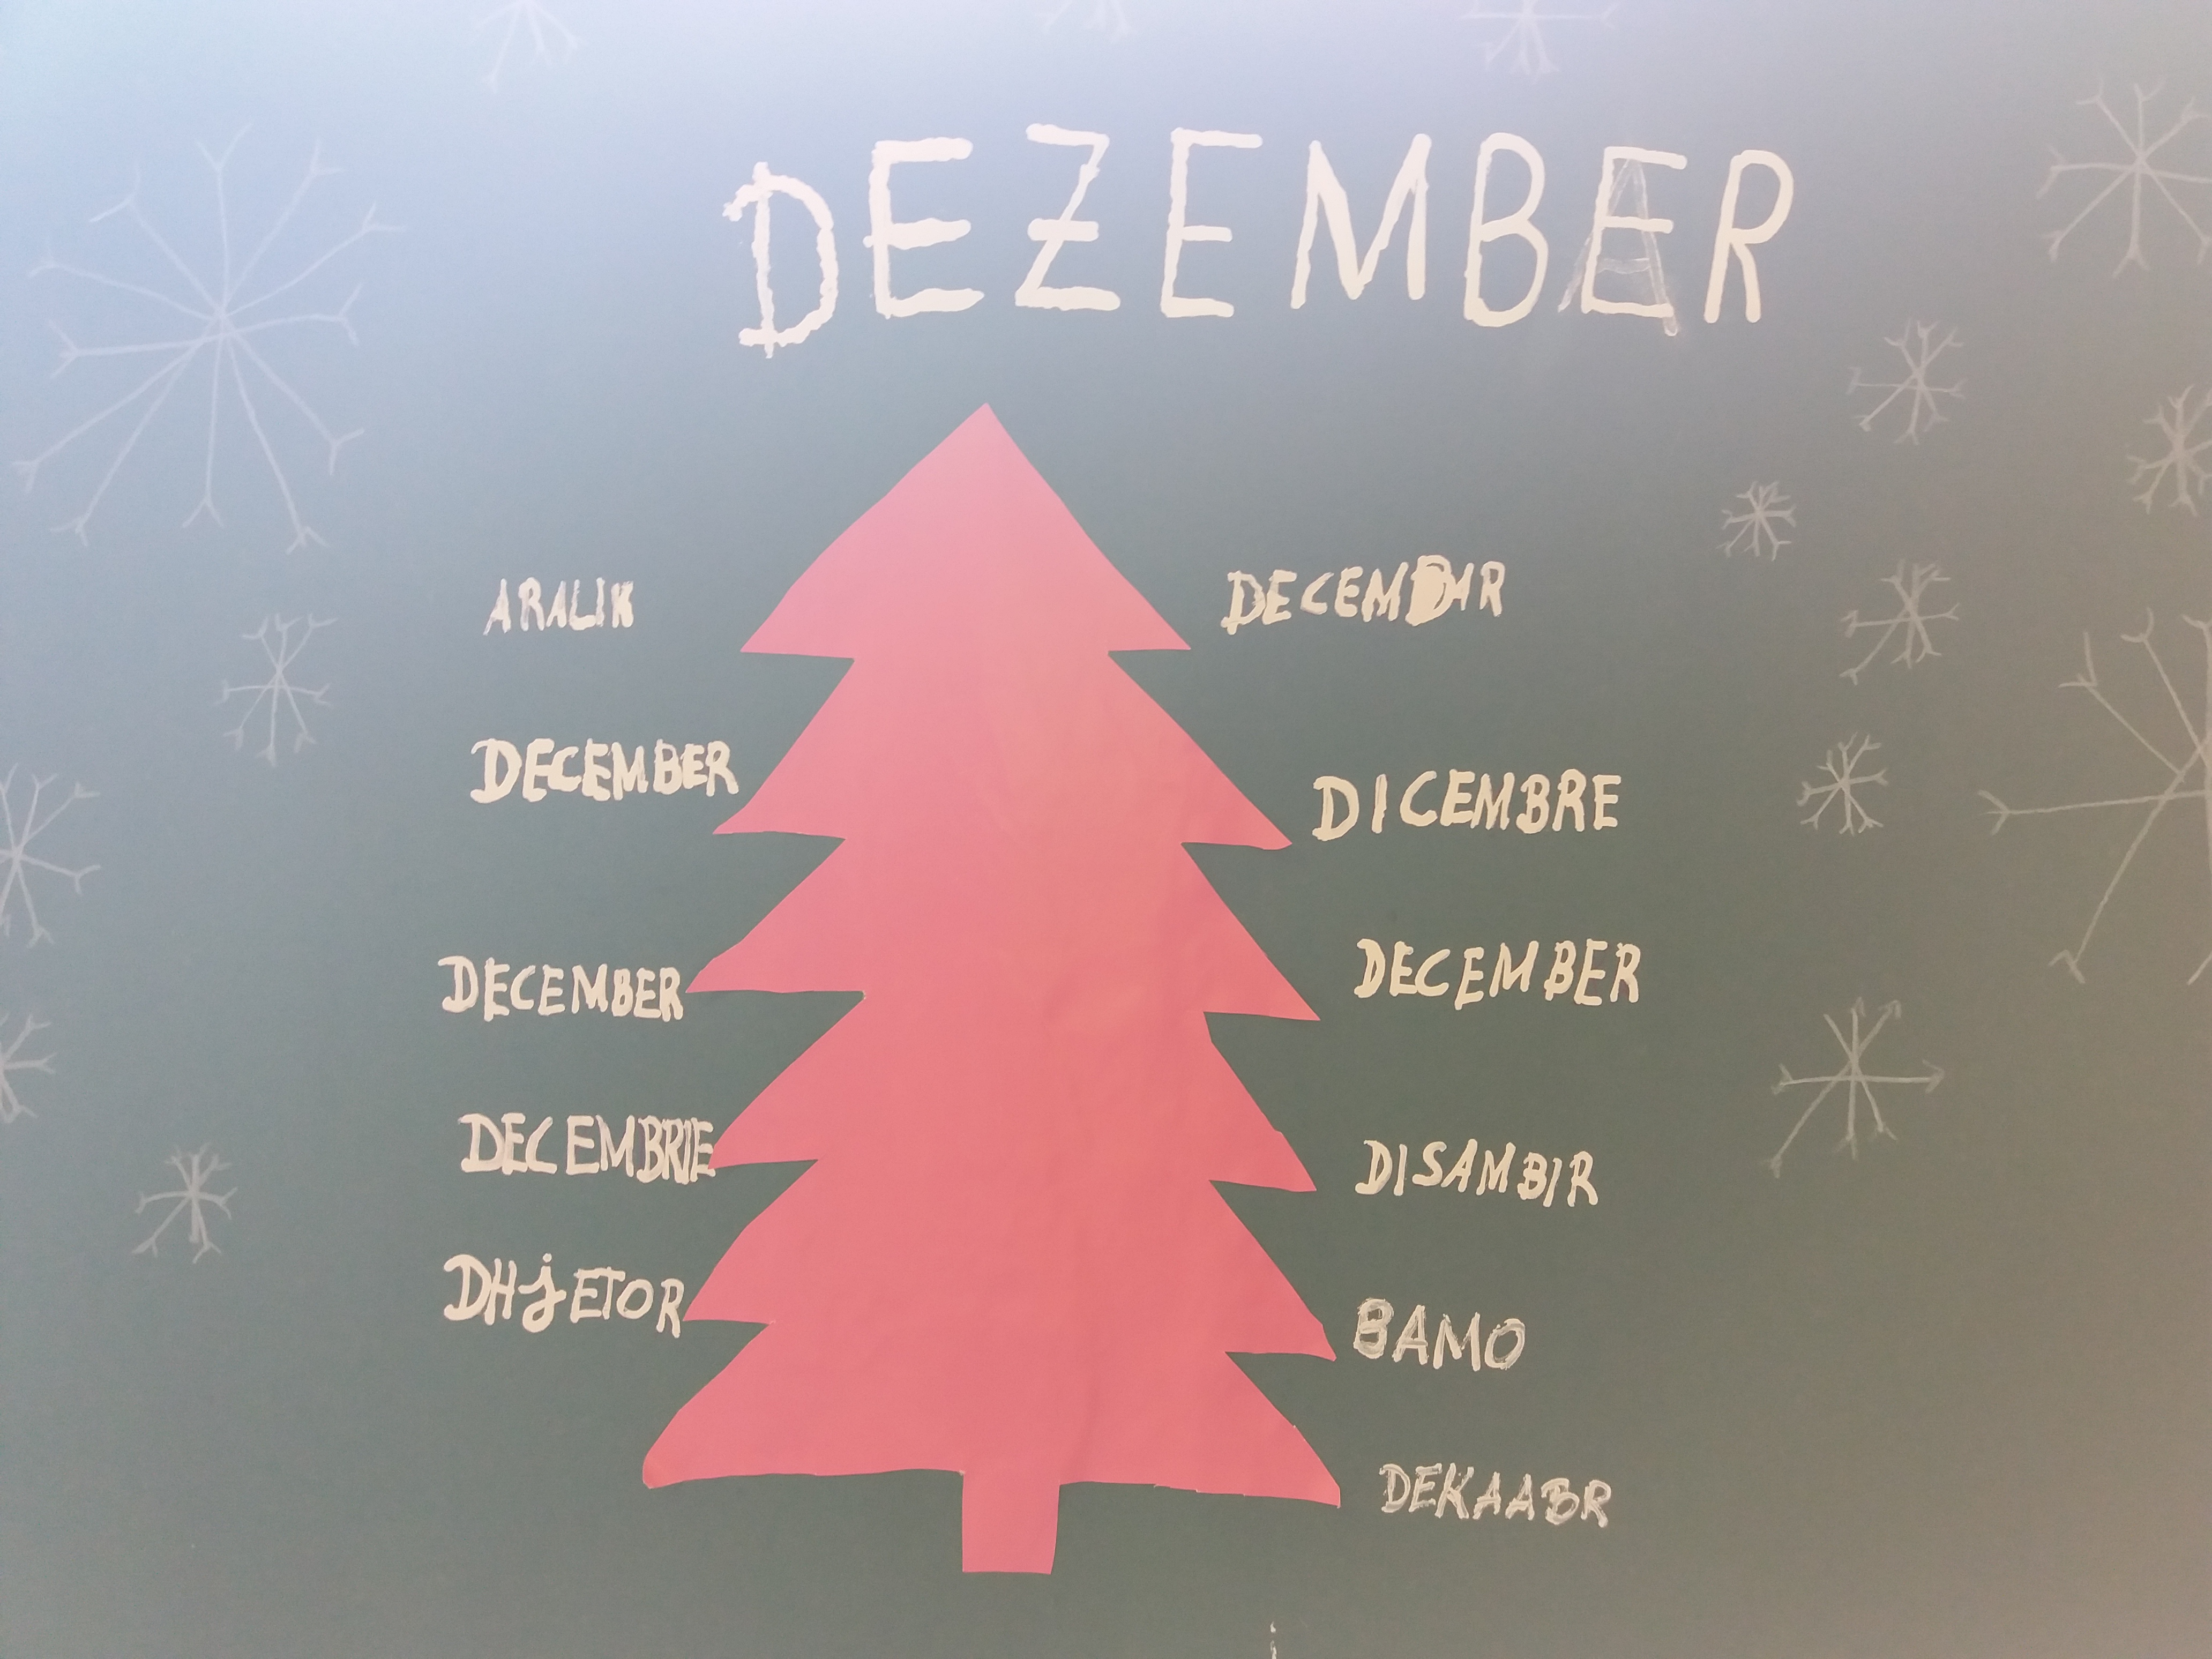 DEZEMBER
ARALIK
DECEMBER
DECEMBER
DECEMBRIE
DHjETOR
DECEMBIR
DICEMBRE
DECEMBER
DISAMBIR
BAMO
DEKAABR